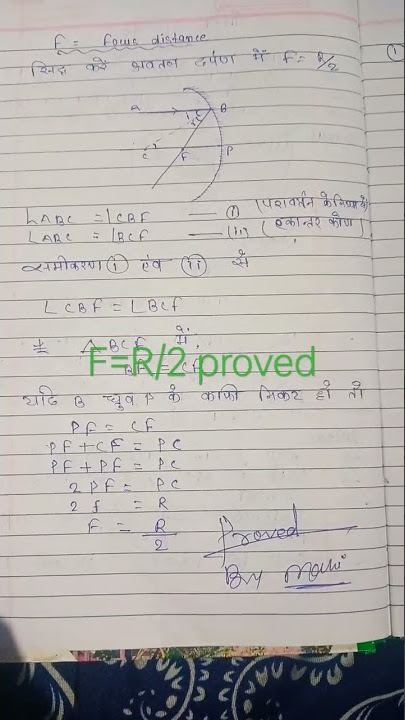 f = focus distance
सिद्ध करें अवतल दर्पण में F = R/2
1
a
B
i
r
C
F
P
∠ABC = ∠CBF — (i) (परावर्तन के नियम से)
∠ABC = ∠BCF — (ii) (एकान्तर कोण)
समीकरण (i) एवं (ii) से
∠CBF = ∠BCF
△ BCF में,
BF = CF
F=R/2 proved
यदि B ध्रुव P के काफी निकट हो तो
PF = CF
PF + CF = PC
PF + PF = PC
2 PF = PC
2 f = R
F = R/2
Proved
By